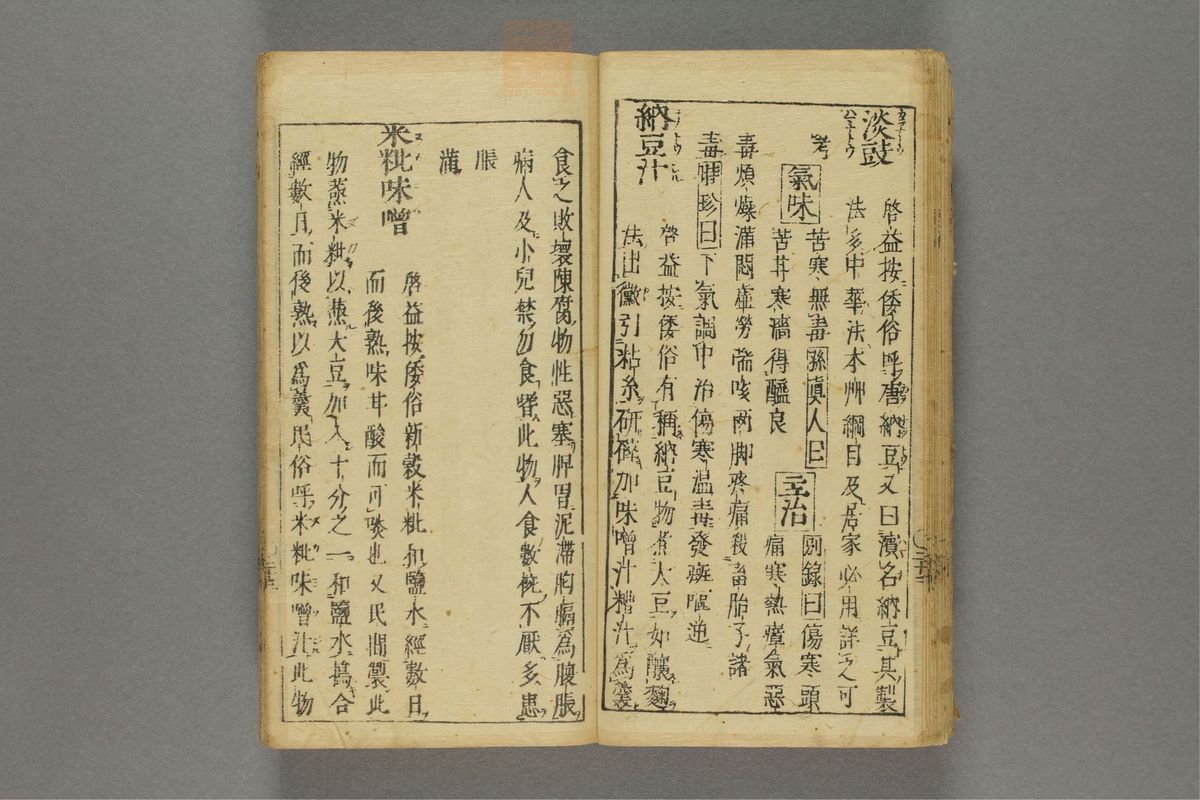 淡豉
啓益按倭俗呼唐納豆又曰濱名納豆其製
法多中華法本艸綱目及居家必用詳之可
考
氣味 苦寒無毒 孫眞人曰
苦甘寒濇得醯良
主治 別錄曰傷寒頭
痛寒熱瘴氣惡
毒煩燥滿悶虛勞喘咳兩脚疼痛殺畜胎子諸
毒 時珍曰 下氣調中治傷寒温毒發斑嘔逆
納豆汁
啓益按倭俗有稱納豆物煮大豆如釀麴
法出黴引粘糸研磨加味噌汁糟汁爲羹
食之敗壞陳腐物性惡塞脾胃泥滯胸膈為腹脹
病人及小兒禁勿食嘗此物人食數椀不厭多患
脹
滿
米粃味噌
啓益按倭俗新穀米粃和鹽水經數日
而後熟味甘酸而可啖也又民間製此
物蒸米粃以蒸大豆加入十分之一和鹽水搗合
經數日而後熟以爲羹民俗呼米粃味噌汁此物